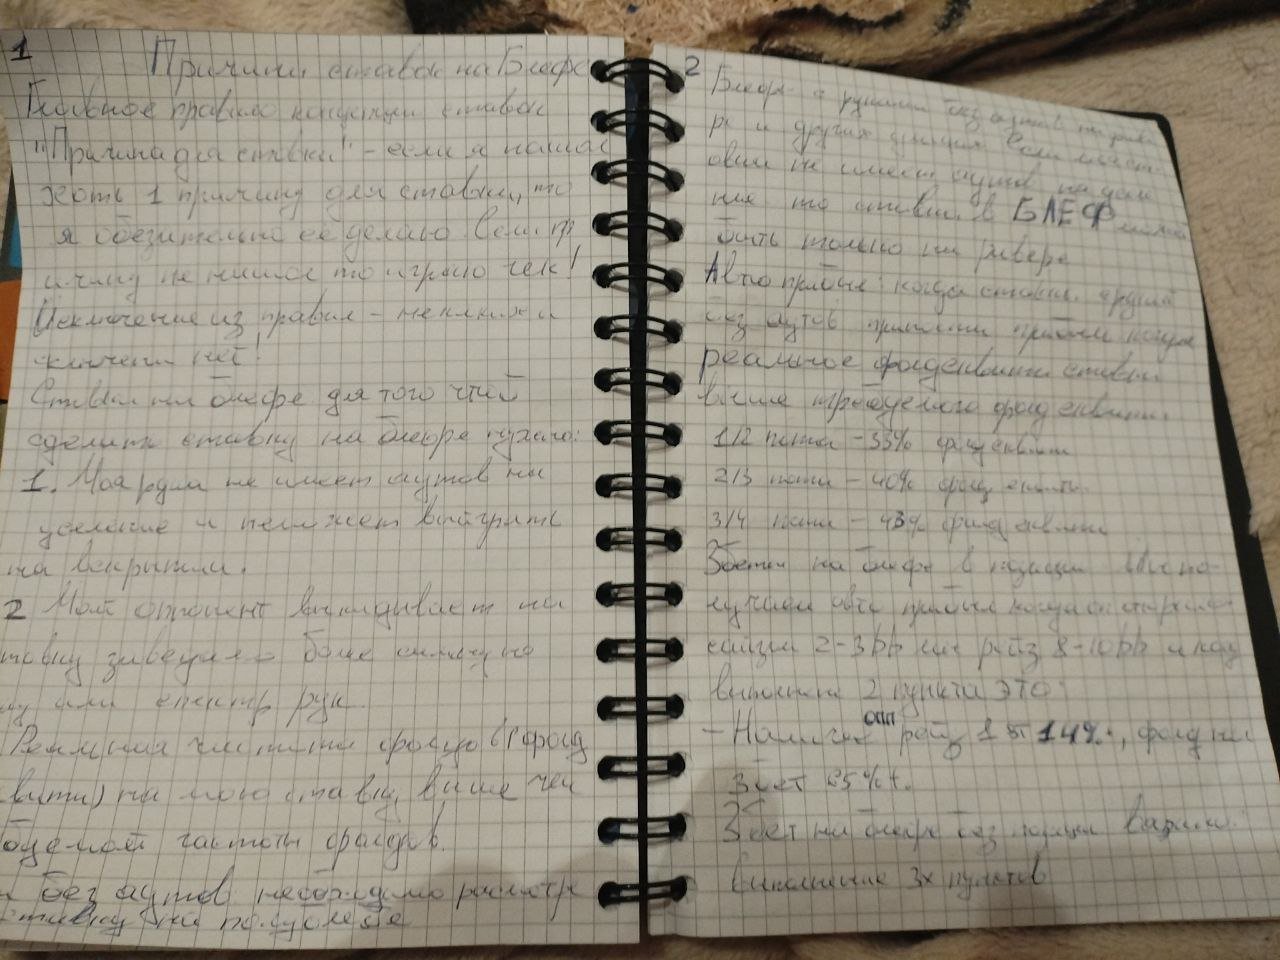 1
Причины ставок на Блефе
Главное правило концепции ставок
"Причина для ставки" - если я нашол
хоть 1 причину для ставки, то
я обезительно ее делаю Если пр
ичину не нашол то играю чек!
Исключение из правил - никаких и
сключени нет!
Ставки на блефе для того чтоб
сделать ставку на блефе нужно:
1. Моя рука не имеет аутов на
усиление и не может выиграть
на вскрытии.
2 Мой оппонент выкидывает на
ставку заведомо более сильную
или спектр рук.
Реальная частота фолдов (фолд
эквити) на мою ставку, выше чем
частоты фолдов
без аутов необходимо рассмотре
ставку на полублефе
2
Блеф с руками без аутов на риве
ре и других улицах Если мы
не имеет аутов на усиле
ние то ставка в БЛЕФ может
быть только на ривере
Авто прибыл: когда ставка с рукой
без аутов приносит прибыл когда
реальное фолдэквити ставки
выше требуемого фолд эквити.
1/2 пота - 33% фолд эквити
2/3 пота - 40% фолд эквити.
3/4 пота - 43% фолд эквити
3беты на блефе в позиции Мы по-
лучаем авто прибыл когда он открыл
сайзом 2-3bb наш рейз 8-10bb и над
выполнить 2 пункта это:
- Наличие опп рейз 1st 14%+, фолд на
3бет 55%+.
3бет на блефе без позиции важно
выполнение 3х пунктов